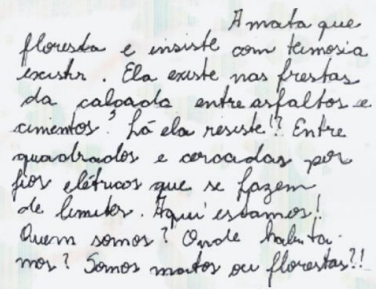 A mata que
floresta e insiste com teimosia
existir. Ela existe nas frestas
da calçada entre asfaltos e
cimentos? Lá ela resiste!? Entre
quadrados e cercadas por
fios elétricos que se fazem
de limites. Aqui estamos!
Quem somos? Onde habita-
mos? Somos matos ou florestas?!